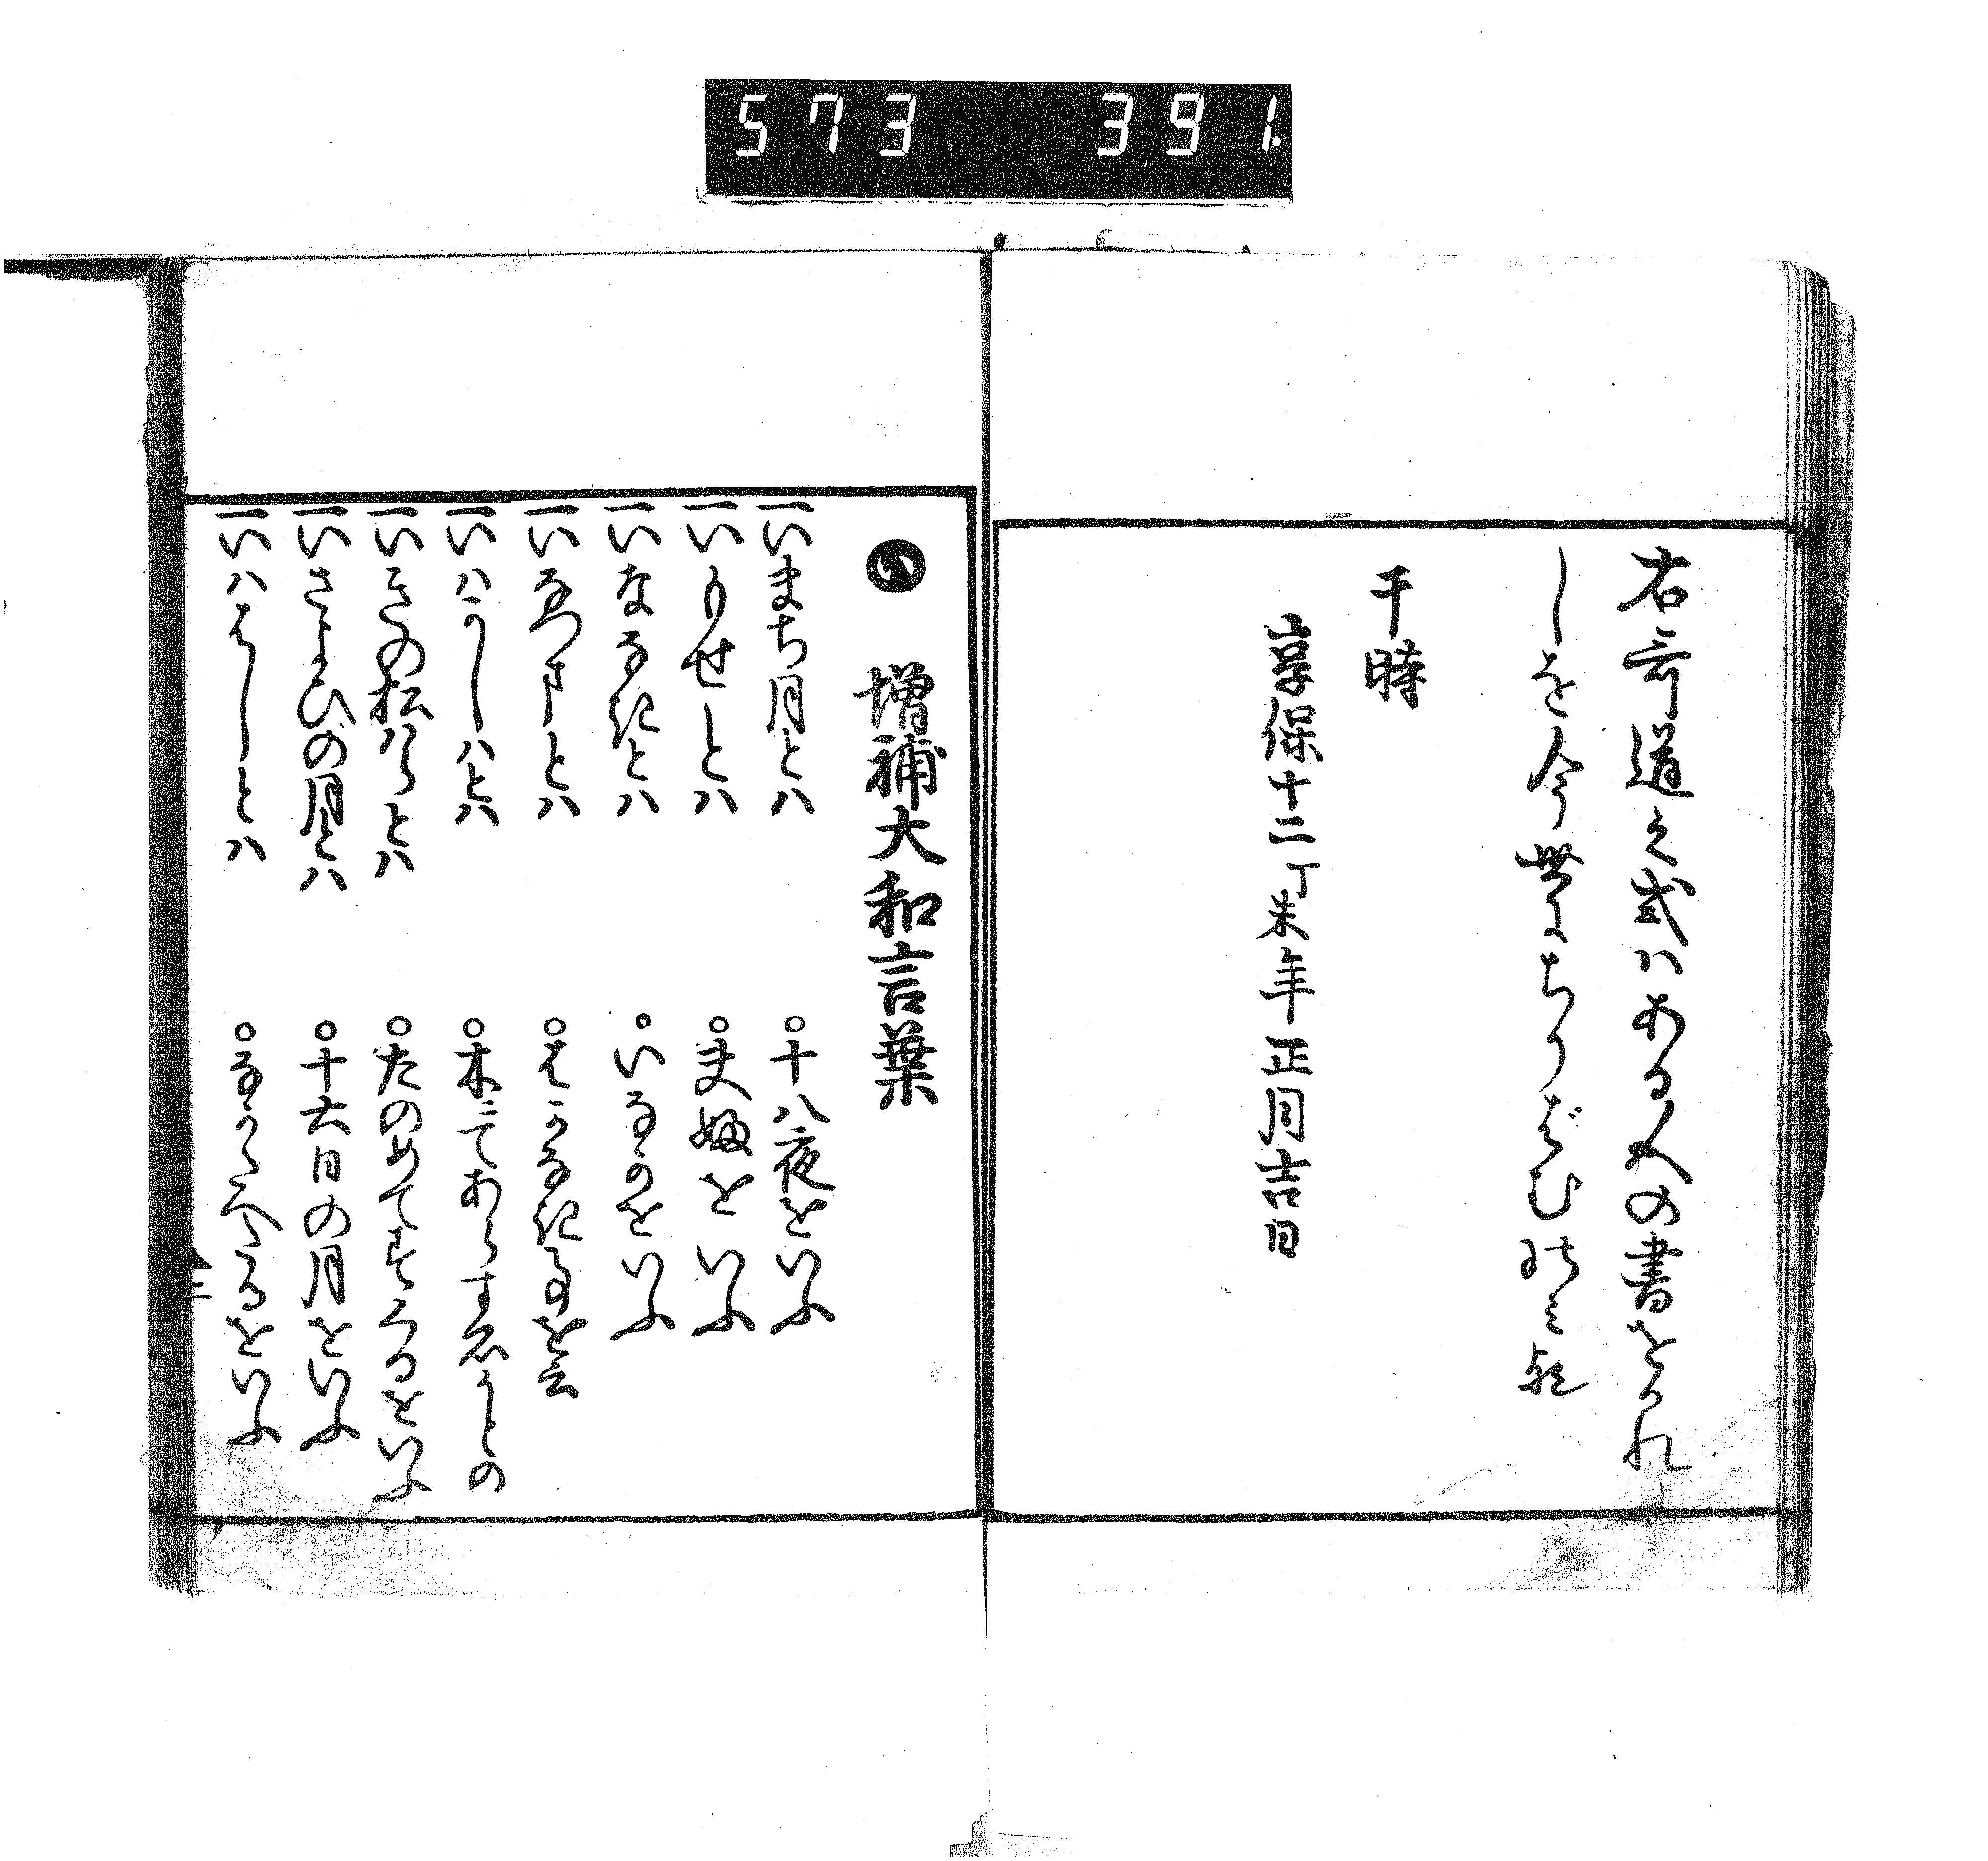 573 391
右哥道之式ハある人の書をかれ
しを今世にちりばむ
于時
享保十二丁未年正月吉日
い 増補大和言葉
一いまち月とハ ○十八夜をいふ
一いもせとハ ○夫婦をいふ
一いなな記とハ ○いなかをいふ
一いなつまとハ ○はかなき事を云
一いハかしハとハ ○木にてあらすゑかとの
一いきの松ハらとハ ○たのめてまつをいふ
一いさよひの月とハ ○十六日の月をいふ
一いハはしとハ ○なかたへたるをいふ